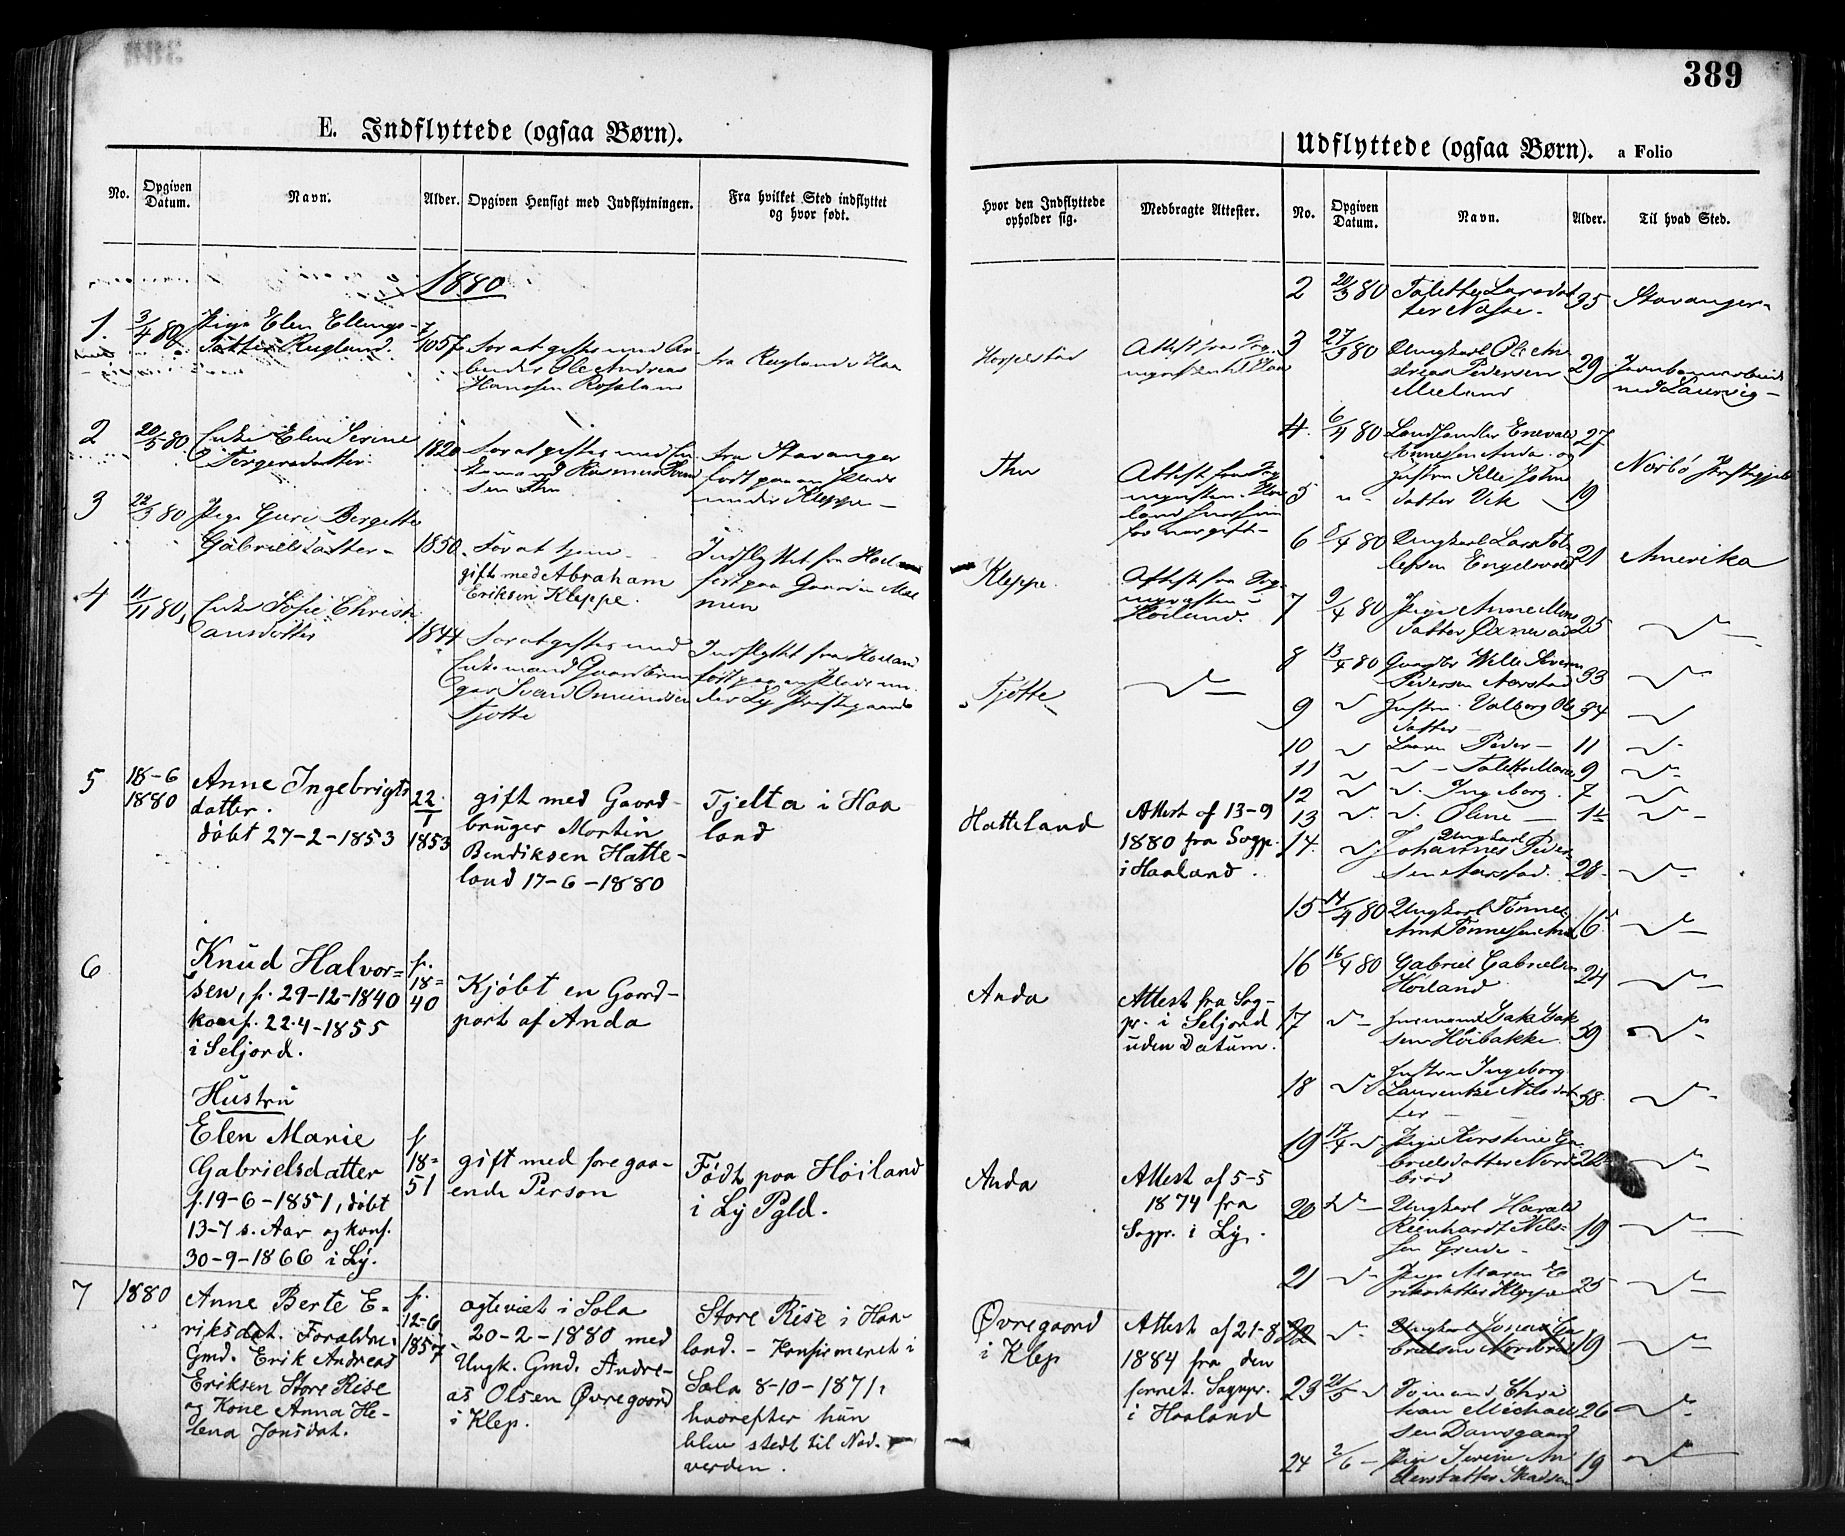 389
E. Indflyttede (ogsaa Børn).
No.
Opgiven
Datum.
Navn.
Alder.
Opgiven Hensigt med Indflytningen.
Fra hvilket Sted indflyttet
og hvor født.
Hvor den Indflyttede
opholder sig.
Medbragte Attester.
1880
1.
3/4 80
Pige Elen Ellings-
datter Rugland.
7/10 57
For at giftes med Ar-
beider Ole Andreas
Hanssen
fra Rugland i Haa
Attest fra Sog-
2
20/5 80
Enke Elen Serine
Torgersdatter
1820
For at giftes med En-
kemand Rasmus
sen Thu
fra Stavanger
født paa en Plads
under Kleppe-
Thu
Attest fra Sog-
3
22/3 80
Pige Guri Bergitte
Gabrielsdatter-
1850
For at tjene
gift med Abraham
Eriksen Kleppe.
Indflyttet fra Hoiland
født paa Gaarden Mal
men
Kleppe.
Attest fra Sog-
nepræsten i
Høiland.
4
11/11 80,
Enke Sofie Christi
ansdatter
1844
For at giftes med
Enkemand Gaardbru
ger Svend Omundsen
Tjøtte
Indflyttet fra Høiland
født paa en Plads un-
der Ly Præstegaard
Tjøtte
5
18-6
1880
Anne Ingebrigts
datter.
döbt 27-2-1853
22/1
1853
gift med Gaard-
bruger Mortin
Bendiksen Hatte-
land 17-6-1880
Tjelta i Haa
land
Hatteland
Attest af 13-9
1880 fra Sogp.
i Haaland.
6
Knud Halvor=
sen, f. 29-12-1840
konf. 22.4-1855
i Seljord.
f.
18=
40
Kjøbt en Gaard-
part af Anda
Anda
Attest fra Sog-
pr. i Seljord
uden Datum.
Hustru
Elen Marie
Gabrielsdatter
f. 19-6-1851, döbt
13-7 s. Aar og konf.
30-9-1866 i Ly.
f
18=
51
gift med foregaa-
ende Person
Født paa Høiland
i Ly Pgld.
Anda
Attest af 5-5
1874 fra
Sogpr. i Ly.
7
1880
Anne Berte E-
riksdat. Forældre:
Gmd. Erik Andreas
Eriksen Store Rise
og Kone Anna He-
lena Jonsdat.
f.
12-6
1857
ægteviet i Sola
20-2-1880 med
Ungk. Gmd. Andre-
as Olsen Øvregaard
i Klep.
Store Rise i Haa-
land. - Konfirmeret i
Sola 8-10-1871,
hvorefter hun
blev stedt til Nad-
verden.
Øvregaard
i Klep
Attest af 21-8
1884 fra den
fornet. Sognpr.
i Haaland
Udflyttede (ogsaa Børn). a Folio
No.
Opgiven
Datum.
Navn.
Alder.
Til hvad Sted.
2
20/3 80
Talette Larsdat
ter Næsse-
35
Stavanger-
3
27/3 80
Ungkarl Ole An
dreas Pedersen
Mæland
29
Jernbanearbeid
ved Laurvig-
4.
6/4 80
Landhandler Enevald
Tønnesen Anda og
27
5
"-
Hustru Sille John
datter Vik
19
6
8/4 80
Ungkarl Lars Tol
lefsen Engelsvold
21
Amerika
7
9/4 80
Pige Anne Mons
datter Øxnevad
25
8
13/4 80
Gaardbr Wille Sivert
Pedersen Nærstad
33
9
Hustru Valborg Ole
datter-
34
10
Søren Peder-
11
11
Talette Marie
9
12
Ingeborg.
7
13
Oline-
14.
Ungkarl
Johannes Peder-
sen Nærstad.
28
15
14/4 80
Ungkarl Tønnes
16
16
16/4 80
Gabriel Gabrielsen
Høiland
24
17
Husmand Isak Isak
sen Høibakke.
59
18
Hustru Ingeborg
Laurentze Nilsdat
ter-
58
19
17/4
Pige Kirstine Ga-
brielsdatter Nord
brød
22
20
Ungkarl Harald
Reinhardt Nils-
sen Grude-
19
21
Pige Maren E
riksdatter Kleppe
25
22
Ungkarl Jonas Ga
brielsen Nordbrød
19
23
21/5
Tomand Chri
stian Michael
sen Damsgaard
26
24
2/6
Pige Serine An
dersdatter Skadsem
19